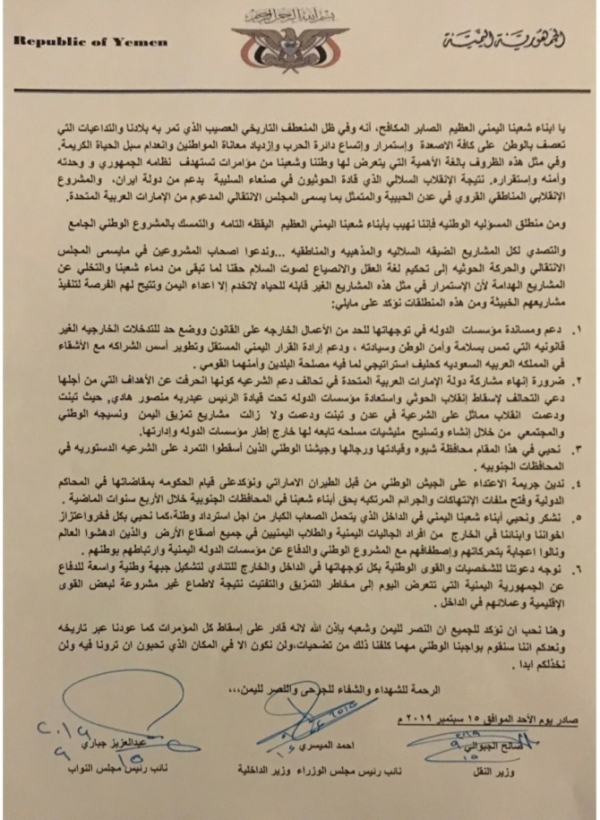 بسم الله الرحمن الرحيم
Republic of Yemen
الجمهورية اليمنية
يا ابناء شعبنا اليمني العظيم الصابر المكافح، أنه وفي ظل المنعطف التاريخي العصيب الذي تمر به بلادنا والتداعيات التي
تعصف بالوطن على كافة الاصعدة وإستمرار وإتساع دائرة الحرب وإزدياد معاناة المواطنين وانعدام سبل الحياة الكريمة.
وفي مثل هذه الظروف بالغة الأهمية التي يتعرض لها وطننا وشعبنا من مؤامرات تستهدف نظامه الجمهوري و وحدته
وأمنه وإستقراره. نتيجة الإنقلاب السلالي الذي قادة الحوثيون في صنعاء السليبة بدعم من دولة ايران، والمشروع
الإنقلابي المناطقي القروي في عدن الحبيبة والمتمثل بما يسمى المجلس الانتقالي المدعوم من الإمارات العربية المتحدة.
ومن منطلق المسؤليه الوطنيه فإننا نهيب بأبناء شعبنا اليمني العظيم اليقظه التامه والتمسك بالمشروع الوطني الجامع
والتصدي لكل المشاريع الضيقه السلاليه والمذهبيه والمناطقيه ...وندعوا اصحاب المشروعين في مايسمى المجلس
الانتقالي والحركة الحوثيه إلى تحكيم لغة العقل والانصياع لصوت السلام حقنا لما تبقى من دماء شعبنا والتخلي عن
المشاريع الهدامة لأن الإستمرار في مثل هذه المشاريع الغير قابله للحياه لاتخدم إلا اعداء اليمن وتتيح لهم الفرصة لتنفيذ
مشاريعهم الخبيثة ومن هذه المنطلقات نؤكد على مايلي:
١. دعم ومساندة مؤسسات الدوله في توجهاتها للحد من الأعمال الخارجه على القانون ووضع حد للتدخلات الخارجيه الغير
قانونيه التي تمس بسلامة وأمن الوطن وسيادته ، ودعم إرادة القرار اليمني المستقل وتطوير أسس الشراكه مع الأشقاء
في المملكه العربيه السعوديه كحليف استراتيجي لما فيه مصلحة البلدين وأمنهما القومي .
٢. ضرورة إنهاء مشاركة دولة الإمارات العربية المتحدة في تحالف دعم الشرعيه كونها انحرفت عن الأهداف التي من أجلها
دعي التحالف لإسقاط إنقلاب الحوثي واستعادة مؤسسات الدوله تحت قيادة الرئيس عبدربه منصور هادي, حيث تبنت
ودعمت انقلاب مماثل على الشرعية في عدن و تبنت ودعمت ولا زالت مشاريع تمزيق اليمن ونسيجه الوطني
والمجتمعي من خلال إنشاء وتسليح مليشيات مسلحه تابعه لها خارج إطار مؤسسات الدوله وإدارتها.
٣. نحيي في هذا المقام محافظة شبوه وقيادتها ورجالها وجيشنا الوطني الذين أسقطوا التمرد على الشرعيه الدستوريه في
المحافظات الجنوبيه .
٤. ندين جريمة الاعتداء على الجيش الوطني من قبل الطيران الاماراتي ونؤكدعلى قيام الحكومه بمقاضاتها في المحاكم
الدولية وفتح ملفات الإنتهاكات والجرائم المرتكبه بحق أبناء شعبنا في المحافظات الجنوبية خلال الأربع سنوات الماضية .
٥. نشكر ونحيي أبناء شعبنا اليمني في الداخل الذي يتحمل الصعاب الكبار من اجل استرداد وطنة،كما نحيي بكل فخرواعتزاز
اخواننا وابنائنا في الخارج من افراد الجاليات اليمنية والطلاب اليمنيين في جميع أصقاع الأرض والذين ادهشوا العالم
ونالوا اعجابة بتحركاتهم وإصطفافهم مع المشروع الوطني والدفاع عن مؤسسات الدوله اليمنية وارتباطهم بوطنهم .
٦. نوجه دعوتنا للشخصيات والقوى الوطنية بكل توجهاتها في الداخل والخارج للتنادي لتشكيل جبهة وطنية واسعة للدفاع
عن الجمهورية اليمنية التي تتعرض اليوم إلى مخاطر التمزيق والتفتيت نتيجة لاطماع غير مشروعة لبعض القوى
الإقليمية وعملائهم في الداخل .
وهنا نحب ان نؤكد للجميع ان النصر لليمن وشعبه بإذن الله لانه قادر على إسقاط كل المؤمرات كما عودنا عبر تاريخه
ونعدكم اننا سنقوم بواجبنا الوطني مهما كلفنا ذلك من تضحيات،ولن نكون الا في المكان الذي تحبون ان ترونا فيه ولن
نخذلكم ابدا .
الرحمة للشهداء والشفاء للجرحى والنصر لليمن،،،
صادر يوم الأحد الموافق ١٥ سبتمبر ٢٠١٩ م
صالح الجبواني
احمد الميسري
عبدالعزيز جباري
٢٠١٩
٩
١٥
وزير النقل
نائب رئيس مجلس الوزراء وزير الداخلية
نائب رئيس مجلس النواب